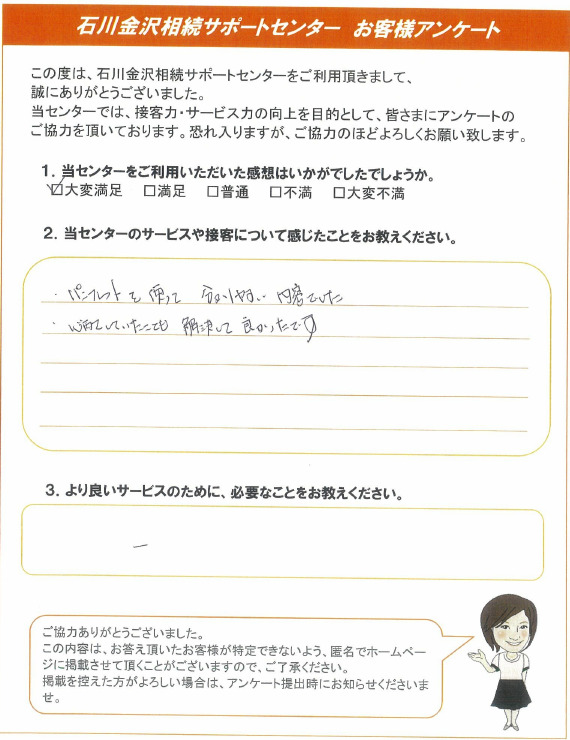 石川金沢相続サポートセンター お客様アンケート
この度は、石川金沢相続サポートセンターをご利用頂きまして、
誠にありがとうございました。
当センターでは、接客力・サービス力の向上を目的として、皆さまにアンケートの
ご協力を頂いております。恐れ入りますが、ご協力のほどよろしくお願い致します。
1. 当センターをご利用いただいた感想はいかがでしたでしょうか。
☑大変満足 □満足 □普通 □不満 □大変不満
2. 当センターのサービスや接客について感じたことをお教えください。
・パンフレットを使って 分かりやすい 内容でした
・ていたことも 解決して 良かったです
3. より良いサービスのために、必要なことをお教えください。
ー
ご協力ありがとうございました。
この内容は、お答え頂いたお客様が特定できないよう、匿名でホームペー
ジに掲載させて頂くことがございますので、ご了承ください。
掲載を控えた方がよろしい場合は、アンケート提出時にお知らせくださいま
せ。